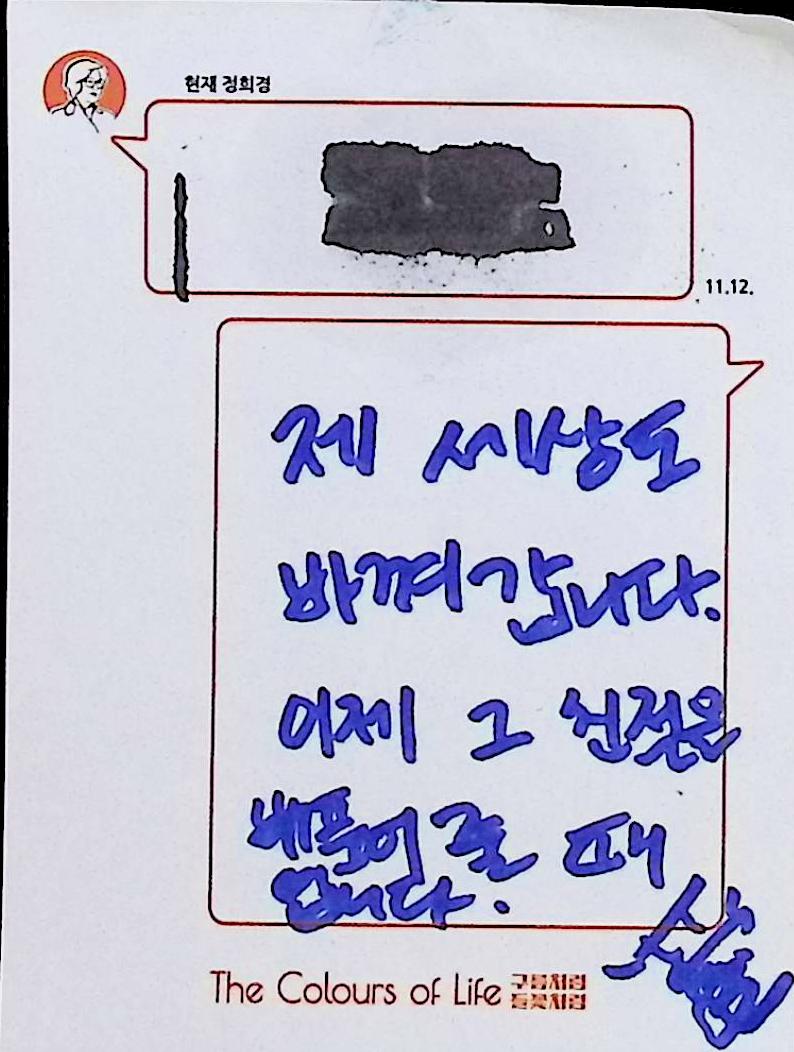 현재 정희경
11.12.
제 세상도
바껴갑니다.
이제 그 친절을
베풀어 줄 때
입니다.
The Colours of Life 구름처럼
들꽃처럼